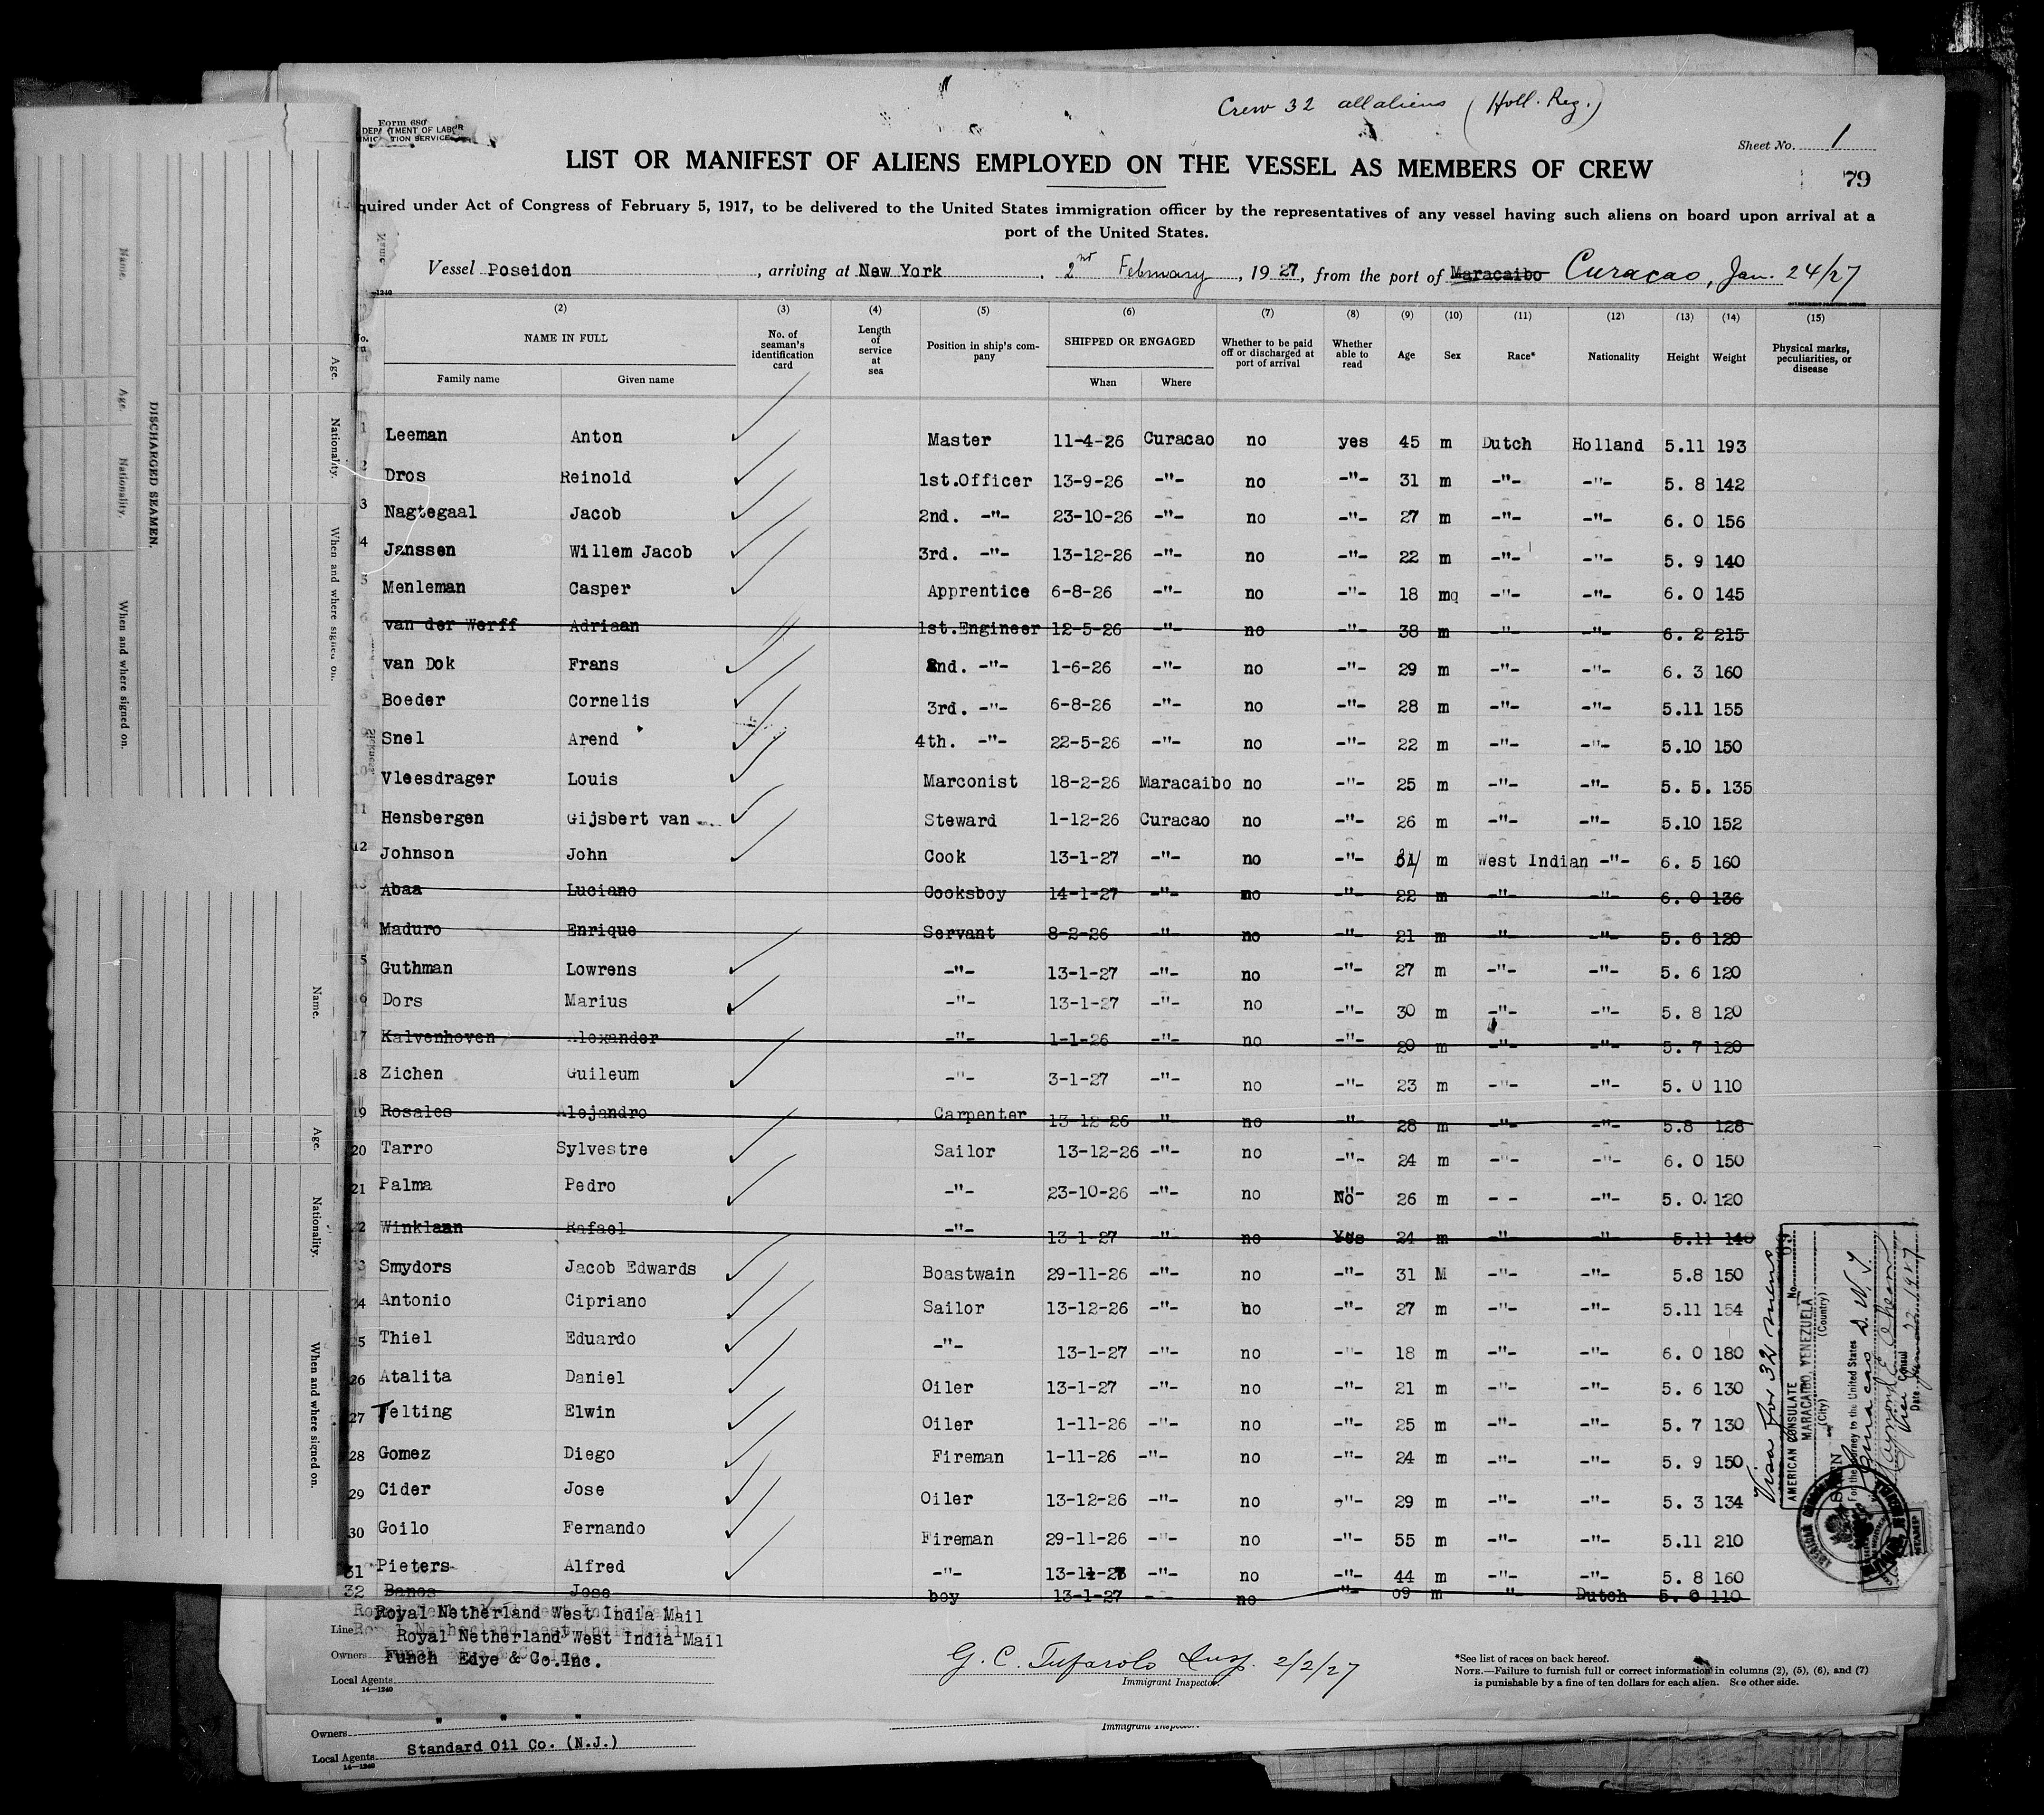 Crew 32 all aliens (Holl. Reg.)
Form 680
DEPARTMENT OF LABOR
Sheet No. 1
LIST OR MANIFEST OF ALIENS EMPLOYED ON THE VESSEL AS MEMBERS OF CREW
79
quired under Act of Congress of February 5, 1917, to be delivered to the United States immigration officer by the representatives of any vessel having such aliens on board upon arrival at a
port of the United States.
Vessel Poseidon, arriving at New York, 2nd February, 1927, from the port of Maracaibo Curacao, Jan. 24/27
(2) (3) (4) (5) (6) (7) (8) (9) (10) (11) (12) (13) (14) (15)
NAME IN FULL No. of seaman's identification card Length of service at sea Position in ship's company SHIPPED OR ENGAGED Whether to be paid off or discharged at port of arrival Whether able to read Age Sex Race* Nationality Height Weight Physical marks, peculiarities, or disease
Family name Given name When Where
1 Leeman Anton Master 11-4-26 Curacao no yes 45 m Dutch Holland 5.11 193
2 Dros Reinold 1st.Officer 13-9-26 -"- no -"- 31 m -"- -"- 5. 8 142
3 Nagtegaal Jacob 2nd. -"- 23-10-26 -"- no -"- 27 m -"- -"- 6. 0 156
4 Janssen Willem Jacob 3rd. -"- 13-12-26 -"- no -"- 22 m -"- -"- 5. 9 140
5 Menleman Casper Apprentice 6-8-26 -"- no -"- 18 mq -"- -"- 6. 0 145
6 van der Werff Adriaan 1st.Engineer 12-5-26 -"- no -"- 38 m -"- -"- 6. 2 215
van Dok Frans 2nd. -"- 1-6-26 -"- no -"- 29 m -"- -"- 6. 3 160
8 Boeder Cornelis 3rd. -"- 6-8-26 -"- no -"- 28 m -"- -"- 5.11 155
Snel Arend 4th. -"- 22-5-26 -"- no -"- 22 m -"- -"- 5.10 150
10 Vleesdrager Louis Marconist 18-2-26 Maracaibo no -"- 25 m -"- -"- 5. 5. 135
11 Hensbergen Gijsbert van Steward 1-12-26 Curacao no -"- 26 m -"- -"- 5.10 152
12 Johnson John Cook 13-1-27 -"- no -"- m West Indian -"- 6. 5 160
13 Abaa Luciano Cooksboy 14-1-27 -"- no -"- 22 m -"- -"- 6. 0 136
14 Maduro Enrique Servant 8-2-26 -"- no -"- 21 m -"- -"- 5. 6 120
15 Guthman Lowrens -"- 13-1-27 -"- no -"- 27 m -"- -"- 5. 6 120
16 Dors Marius -"- 13-1-27 -"- no -"- 30 m -"- -"- 5. 8 120
17 Kalvenhoven Alexander -"- 1-1-26 -"- no -"- 20 m -"- -"- 5. 7 120
18 Zichen Guileum -"- 3-1-27 -"- no -"- 23 m -"- -"- 5. 0 110
19 Rosales Alejandro Carpenter 13-12-26 -"- no -"- 28 m -"- -"- 5.8 128
20 Tarro Sylvestre Sailor 13-12-26 -"- no -"- 24 m -"- -"- 6. 0 150
21 Palma Pedro -"- 23-10-26 -"- no No 26 m - - -"- 5. 0. 120
22 Winklaan Rafael -"- 13-1-27 -"- no Yes 24 m -"- -"- 5.11 140
23 Smydors Jacob Edwards Boastwain 29-11-26 -"- no -"- 31 M -"- -"- 5.8 150
24 Antonio Cipriano Sailor 13-12-26 -"- no -"- 27 m -"- -"- 5.11 154
25 Thiel Eduardo -"- 13-1-27 -"- no -"- 18 m -"- -"- 6. 0 180
26 Atalita Daniel Oiler 13-1-27 -"- no -"- 21 m -"- -"- 5. 6 130
27 Telting Elwin Oiler 1-11-26 -"- no -"- 25 m -"- -"- 5. 7 130
28 Gomez Diego Fireman 1-11-26 -"- no -"- 24 m -"- -"- 5. 9 150
29 Cider Jose Oiler 13-12-26 -"- no -"- 29 m -"- -"- 5. 3 134
30 Goilo Fernando Fireman 29-11-26 -"- no -"- 55 m -"- -"- 5.11 210
31 Pieters Alfred -"- -"- no -"- 44 m -"- -"- 5. 8 160
32 Banos Jose boy 13-1-27 - - no -"- 09 m -"- Dutch 5. 0 110
Line Royal Netherland West India Mail
Royal Netherland West India Mail
Owners Funch Edye & Co.Inc.
Local Agents
14—1240
G. C. Tufarolo Insp. 2/2/27
Immigrant Inspector.
*See list of races on back hereof.
NOTE.—Failure to furnish full or correct information in columns (2), (5), (6), and (7)
is punishable by a fine of ten dollars for each alien. See other side.
Owners
Immigrant Inspector.
Local Agents Standard Oil Co. (N.J.)
14—1240
Visa for 32 mens
AMERICAN CONSULATE No.
MARACAIBO, VENEZUELA
(City) (Country)
SEEN
For the journey to the United States
Curacao D. W. I.
Vice Consul
Date
STAMP
DISCHARGED SEAMEN.
Name.
Age.
Nationality.
When and where signed on.
Age.
Nationality.
When and where signed on.
Name.
Age.
Nationality.
When and where signed on.